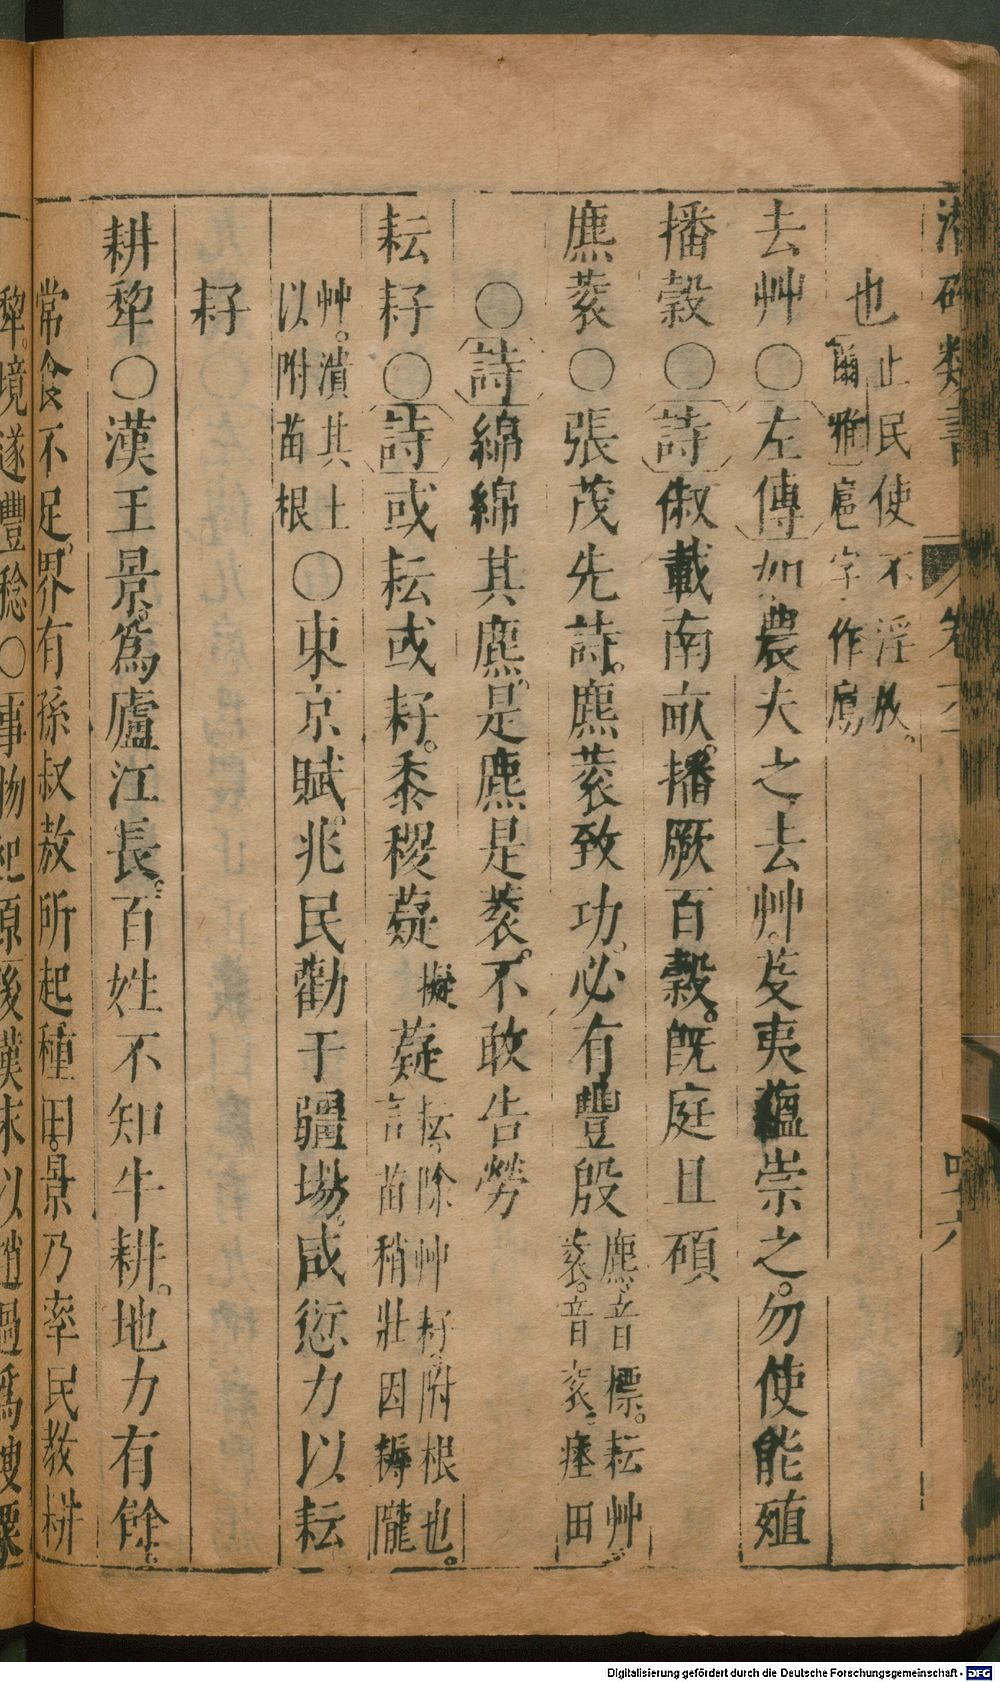 潛確類書 卷
也止民使不淫放。爾雅扈字作鳸
去艸○左傳如農夫之去艸。芟夷蘊崇之。勿使能殖
播穀○詩俶載南畝。播厥百穀。既庭且碩
麃蓘○張茂先詩。麃蓘致功。必有豐殷麃。音標。耘艸。蓘。音衮。壅田
○詩綿綿其麃。是麃是蓘。不敢告勞
耘耔○詩或耘或耔。黍稷薿擬薿耘。除艸耔。附根也。言苗稍壯因耨隴
艸。潰其土以附苗根○東京賦。兆民勸于疆場。咸懋力以耘
耔
耕犂○漢王景。爲廬江長。百姓不知牛耕。地力有餘。
常食不足。界有孫叔敖所起種田。景乃率民教耕
犂。境遂豐稔○事物起原後漢末以趙過爲搜粟
Digitalisierung gefördert durch die Deutsche Forschungsgemeinschaft - DFG